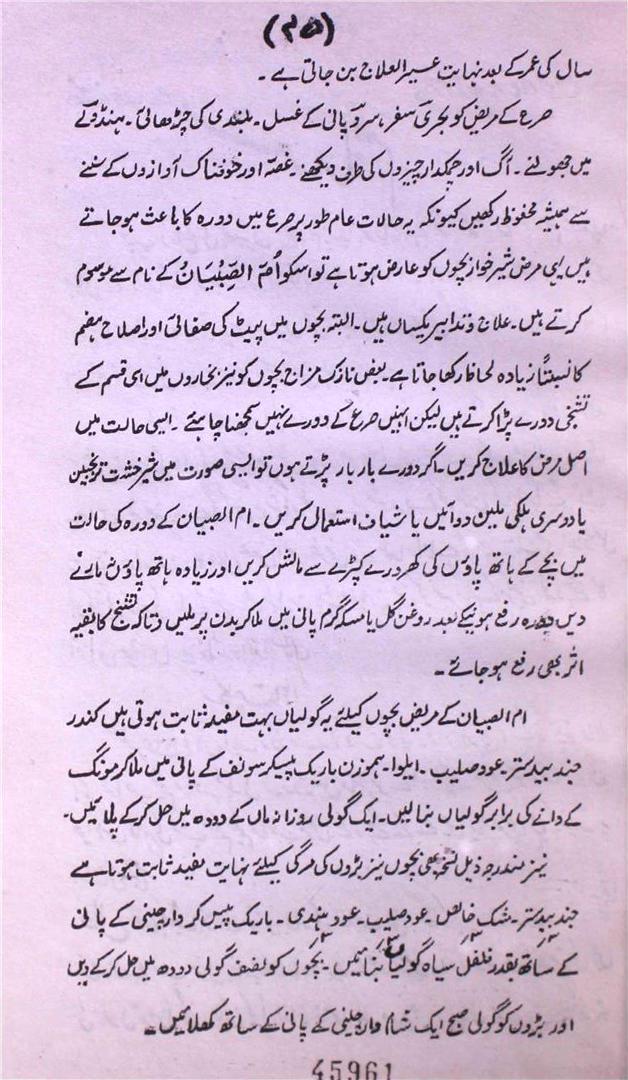 (۴۵)
سال کی عمر کے بعد نہایت عسیر العلاج بن جاتی ہے ۔
صرع کے مریض کو بحری سفر، سرد پانی کے غسل ۔ بلندی کی چڑھائی ۔ ہنڈولے
میں جھولنے ۔ آگ اور چمکدار چیزوں کی طرف دیکھنے ۔ غصہ اور خوفناک آوازوں کے سننے
سے ہمیشہ محفوظ رکھیں کیونکہ یہ حالات عام طور پر صرع میں دورہ کا باعث ہو جاتے
ہیں یہی مرض شیر خوار بچوں کو عارض ہوتا ہے تو اسکو اُمّ الصِّبْیَانُ کے نام سے موسوم
کرتے ہیں ۔ علاج و تدابیر یکساں ہیں ۔ البتہ بچوں میں پیٹ کی صفائی اور اصلاح ہضم
کا نسبتاً زیادہ لحاظ رکھا جاتا ہے ۔ بعض نازک مزاج بچوں کو تیز بخاروں میں اسی قسم کے
تشنجی دورے پڑا کرتے ہیں لیکن انہیں صرع کے دورے نہیں سمجھنا چاہئے ۔ ایسی حالت میں
اصل مرض کا علاج کریں ۔ اگر دورے بار بار پڑتے ہوں تو ایسی صورت میں شیر خشت ترنجبین
یا دوسری ہلکی ملین دوائیں یا شیاف استعمال کریں ۔ ام الصبیان کے دورہ کی حالت
میں بچے کے ہاتھ پاؤں کی کھردرے کپڑے سے مالش کریں اور زیادہ ہاتھ پاؤں مارنے
دیں دورہ رفع ہونیکے بعد روغن گل یا مسکہ گرم پانی میں ملا کر بدن پر ملیں تاکہ تشنج کا بقیہ
اثر بھی رفع ہو جائے ۔
ام الصبیان کے مریض بچوں کیلئے یہ گولیاں بہت مفید ثابت ہوتی ہیں کندر
جند بیدستر ۔ عود صلیب ۔ ایلوا ۔ ہموزن باریک پیسکر سونف کے پانی میں ملا کر مونگ
کے دانے کی برابر گولیاں بنالیں ۔ ایک گولی روزانہ ماں کے دودھ میں حل کر کے پلائیں ۔
نیز مندرجہ ذیل نسخہ بھی بچوں نیز بڑوں کی مرگی کیلئے نہایت مفید ثابت ہوتا ہے
جند بیدستر ۔ مشک خالص ۔ عود صلیب ۔ عود ہندی ۔ باریک پیس کر دار چینی کے پانی
کے ساتھ بقدر فلفل سیاہ گولیاں بنائیں ۔ بچوں کو نصف گولی دودھ میں حل کر کے دیں
اور بڑوں کو گولی صبح ایک شام دار چینی کے پانی کے ساتھ کھلائیں ۔
45961